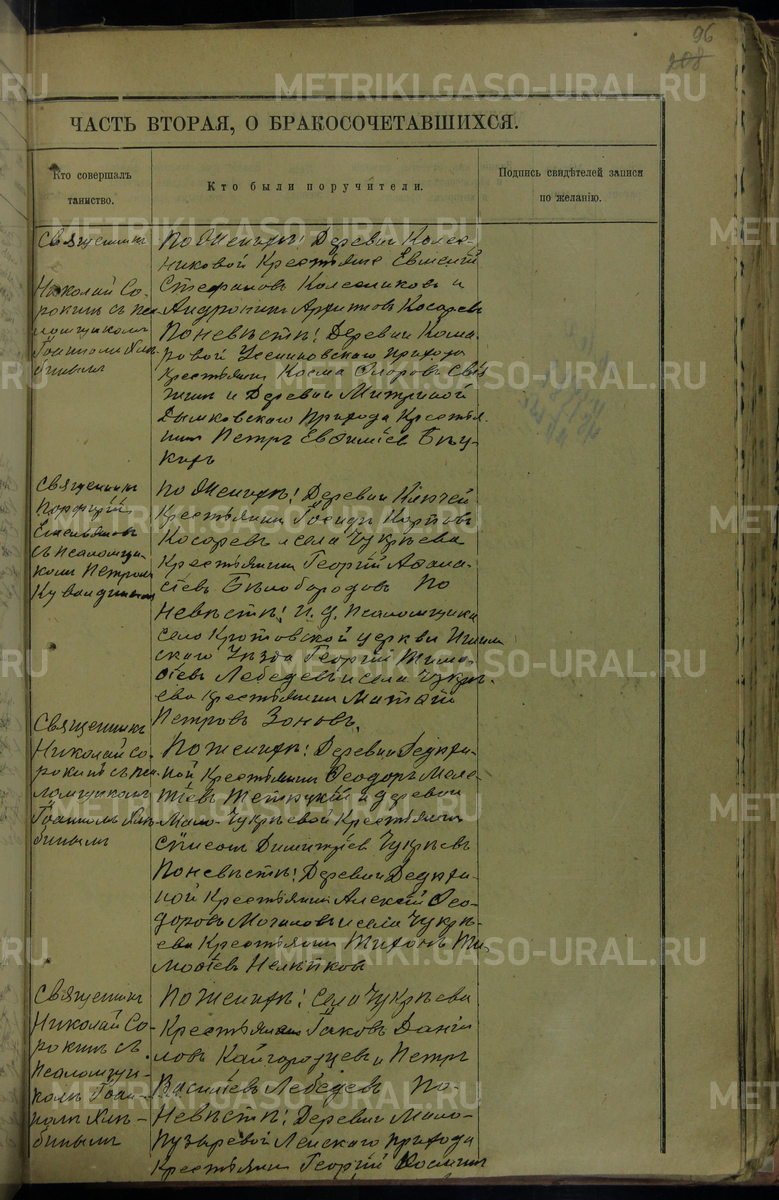 96
208
ЧАСТЬ ВТОРАЯ, О БРАКОСОЧЕТАВШИХСЯ.
Кто совершалъ
таинство.
Кто были поручители.
Подпись свидѣтелей записи
по желанію.
Священникъ
Николай Со-
рокинъ съ пса
ломщикомъ
Іоанномъ Хлѣ-
бинымъ
По Женихѣ: Деревни Колес-
никовой Крестьяне Евменій
Стефановъ Колесниковъ и
Андроникъ Архиповъ Косаревъ
По невѣстѣ: Деревни Кома-
ровой прихода
крестьянинъ Косма
и Деревни
Дымковскаго Прихода Крестья-
нинъ Петръ Евѳиміевъ
Священникъ
Порфирій
Емельяновъ
съ Псаломщи-
комъ Петромъ
По Женихѣ: Деревни Ключей
Крестьянинъ Іосифъ Карповъ
Косаревъ и села Чукрѣева
Крестьянинъ Георгій Аѳана-
сіевъ Бѣлобородовъ По
Невѣстѣ: И. д. Псаломщика
село Кротовской церкви Ишим
скаго Уѣзда Георгій Тимо-
ѳіевъ Лебедевъ и села Чукрѣ-
ева крестьянинъ Матѳій
Петровъ Зоновъ.
Священникъ
Николай Со-
рокинъ съ пса-
ломщикомъ
Іоанномъ Хлѣ-
бинымъ
По женихѣ: Деревни
ной Крестьянинъ Ѳеодоръ Меле-
тіевъ и деревни
Мало-Чукрѣевой Крестьянинъ
Димитріевъ Чукрѣевъ
По невѣстѣ: Деревни
ной Крестьянинъ Алексій Ѳео-
доровъ и села Чукрѣ-
ева Крестьянинъ Тихонъ Ти-
моѳіевъ
Священникъ
Николай Со-
рокинъ съ
Псаломщи-
комъ Іоан-
номъ Хлѣ-
бинымъ
По Женихѣ: Села Чукрѣева
Крестьяне Іаковъ Даніи
ловъ Кайгородцевъ и Петръ
Василіевъ Лебедевъ По-
Невѣстѣ: Деревни Мало-
Пузыревой прихода
Крестьянинъ Георгій
METRIKI.GASO-URAL.RU